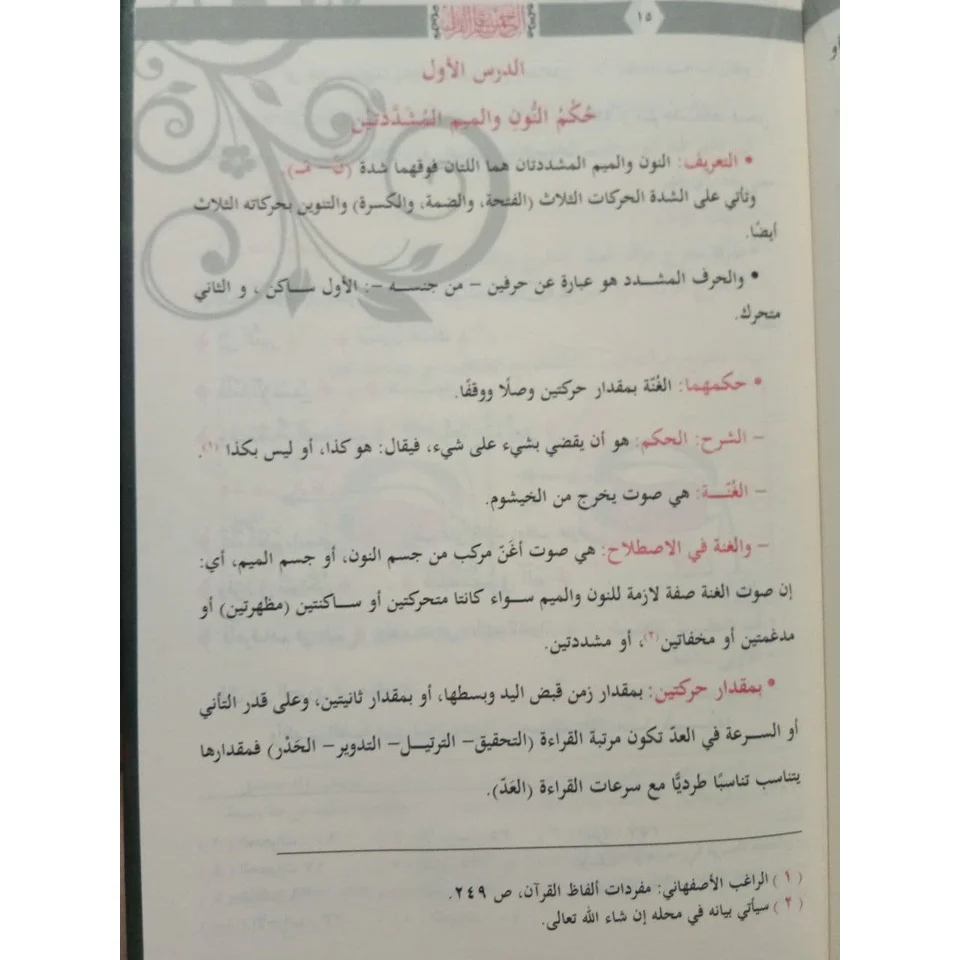 ١٥
الدرس الأول
حُكْمُ النُّونِ والميمِ المُشَدَّدتَيْنِ
• التعريف: النون والميم المشددتان هما اللتان فوقهما شدة (نّ – مّـ)
وتأتي على الشدة الحركات الثلاث (الفتحة، والضمة، والكسرة) والتنوين بحركاته الثلاث
أيضًا.
• والحرف المشـدد هو عبارة عن حرفين – من جنسـه –: الأول سـاكن ، و الثاني
متحرك.
• حكمهما: الغُنّة بمقدار حركتين وصلًا ووقفًا.
– الشرح: الحكم: هو أن يقضي بشيء على شيء، فيقال: هو كذا، أو ليس بكذا (١).
– الغُنّـــة: هي صوت يخرج من الخيشوم.
– والغنة في الاصطلاح: هي صوت أغَنّ مركب من جسم النون، أو جسم الميم، أي:
إن صوت الغنة صفة لازمة للنون والميم سـواء كانتا متحركتين أو سـاكنتين (مظهرتين) أو
مدغمتين أو مخفاتين(٢)، أو مشددتين.
• بمقدار حركتين: بمقدار زمن قبض اليد وبسطها، أو بمقدار ثانيتين، وعلى قدر التأني
أو السـرعة في العدّ تكون مرتبة القراءة (التحقيق– الترتيـل– التدوير– الحَدْر) فمقدارها
يتناسب تناسبًا طرديًّا مع سرعات القراءة (العَدّ).
( ١ ) الراغب الأصفهاني: مفردات ألفاظ القرآن، ص ٢٤٩.
( ٢ ) سيأتي بيانه في محله إن شاء الله تعالى.